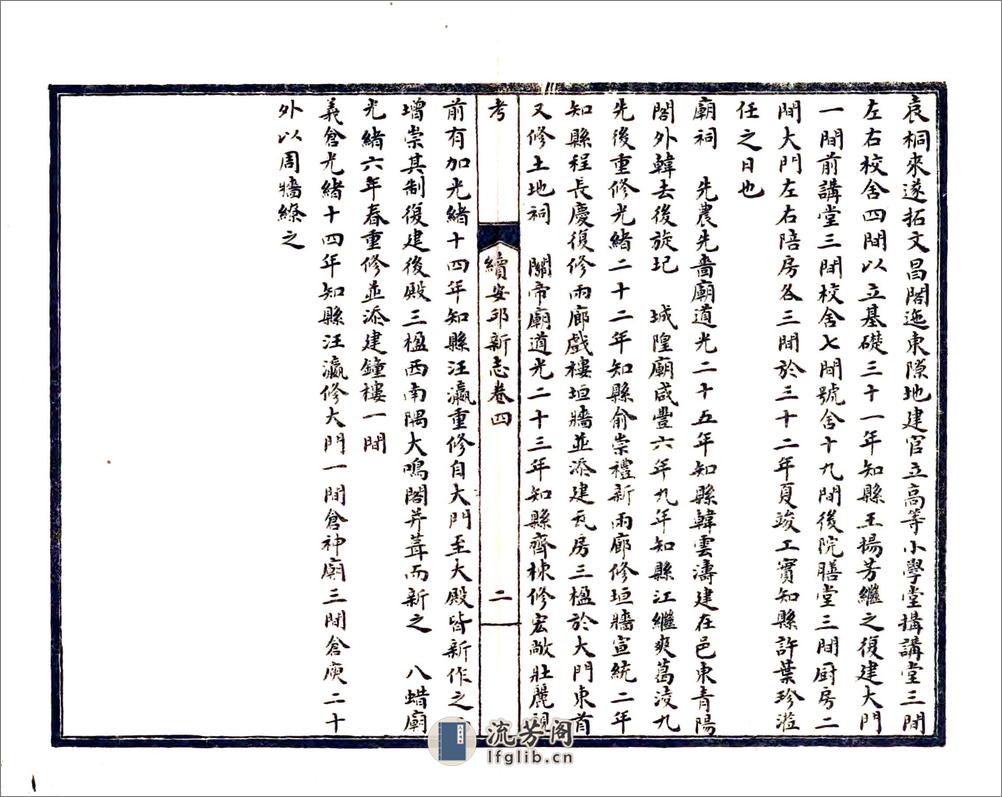 袁桐來遂拓文昌閣迤東隙地建官立高等小學堂搆講堂三間
左右校舍四間以立基礎三十一年知縣王揚芳繼之復建大門
一間前講堂三間校舍七間號舍十九間後院膳堂三間厨房二
間大門左右陪房各三間於三十二年夏竣工實知縣許葉珍涖
任之日也
廟祠　先農先嗇廟道光二十五年知縣韓雲濤建在邑東青陽
閣外韓去後旋圮　城隍廟咸豐六年九年知縣江繼爽葛淩九
先後重修光緒二十二年知縣俞崇禮新兩廊修垣牆宣統二年
知縣程長慶復修兩廊戲樓垣牆並添建瓦房三楹於大門東首
又修土地祠　關帝廟道光二十三年知縣齊棟修宏敞壯麗視
考　續安邱新志卷四　二
前有加光緒十四年知縣汪瀛重修自大門至大殿皆新作之
增崇其制復建後殿三楹西南隅大鳴閣并葺而新之　八蜡廟
光緒六年春重修並添建鐘樓一間
義倉光緒十四年知縣汪瀛修大門一間倉神廟三間倉庾二十
外以周牆繚之
流芳阁
lfglib.cn